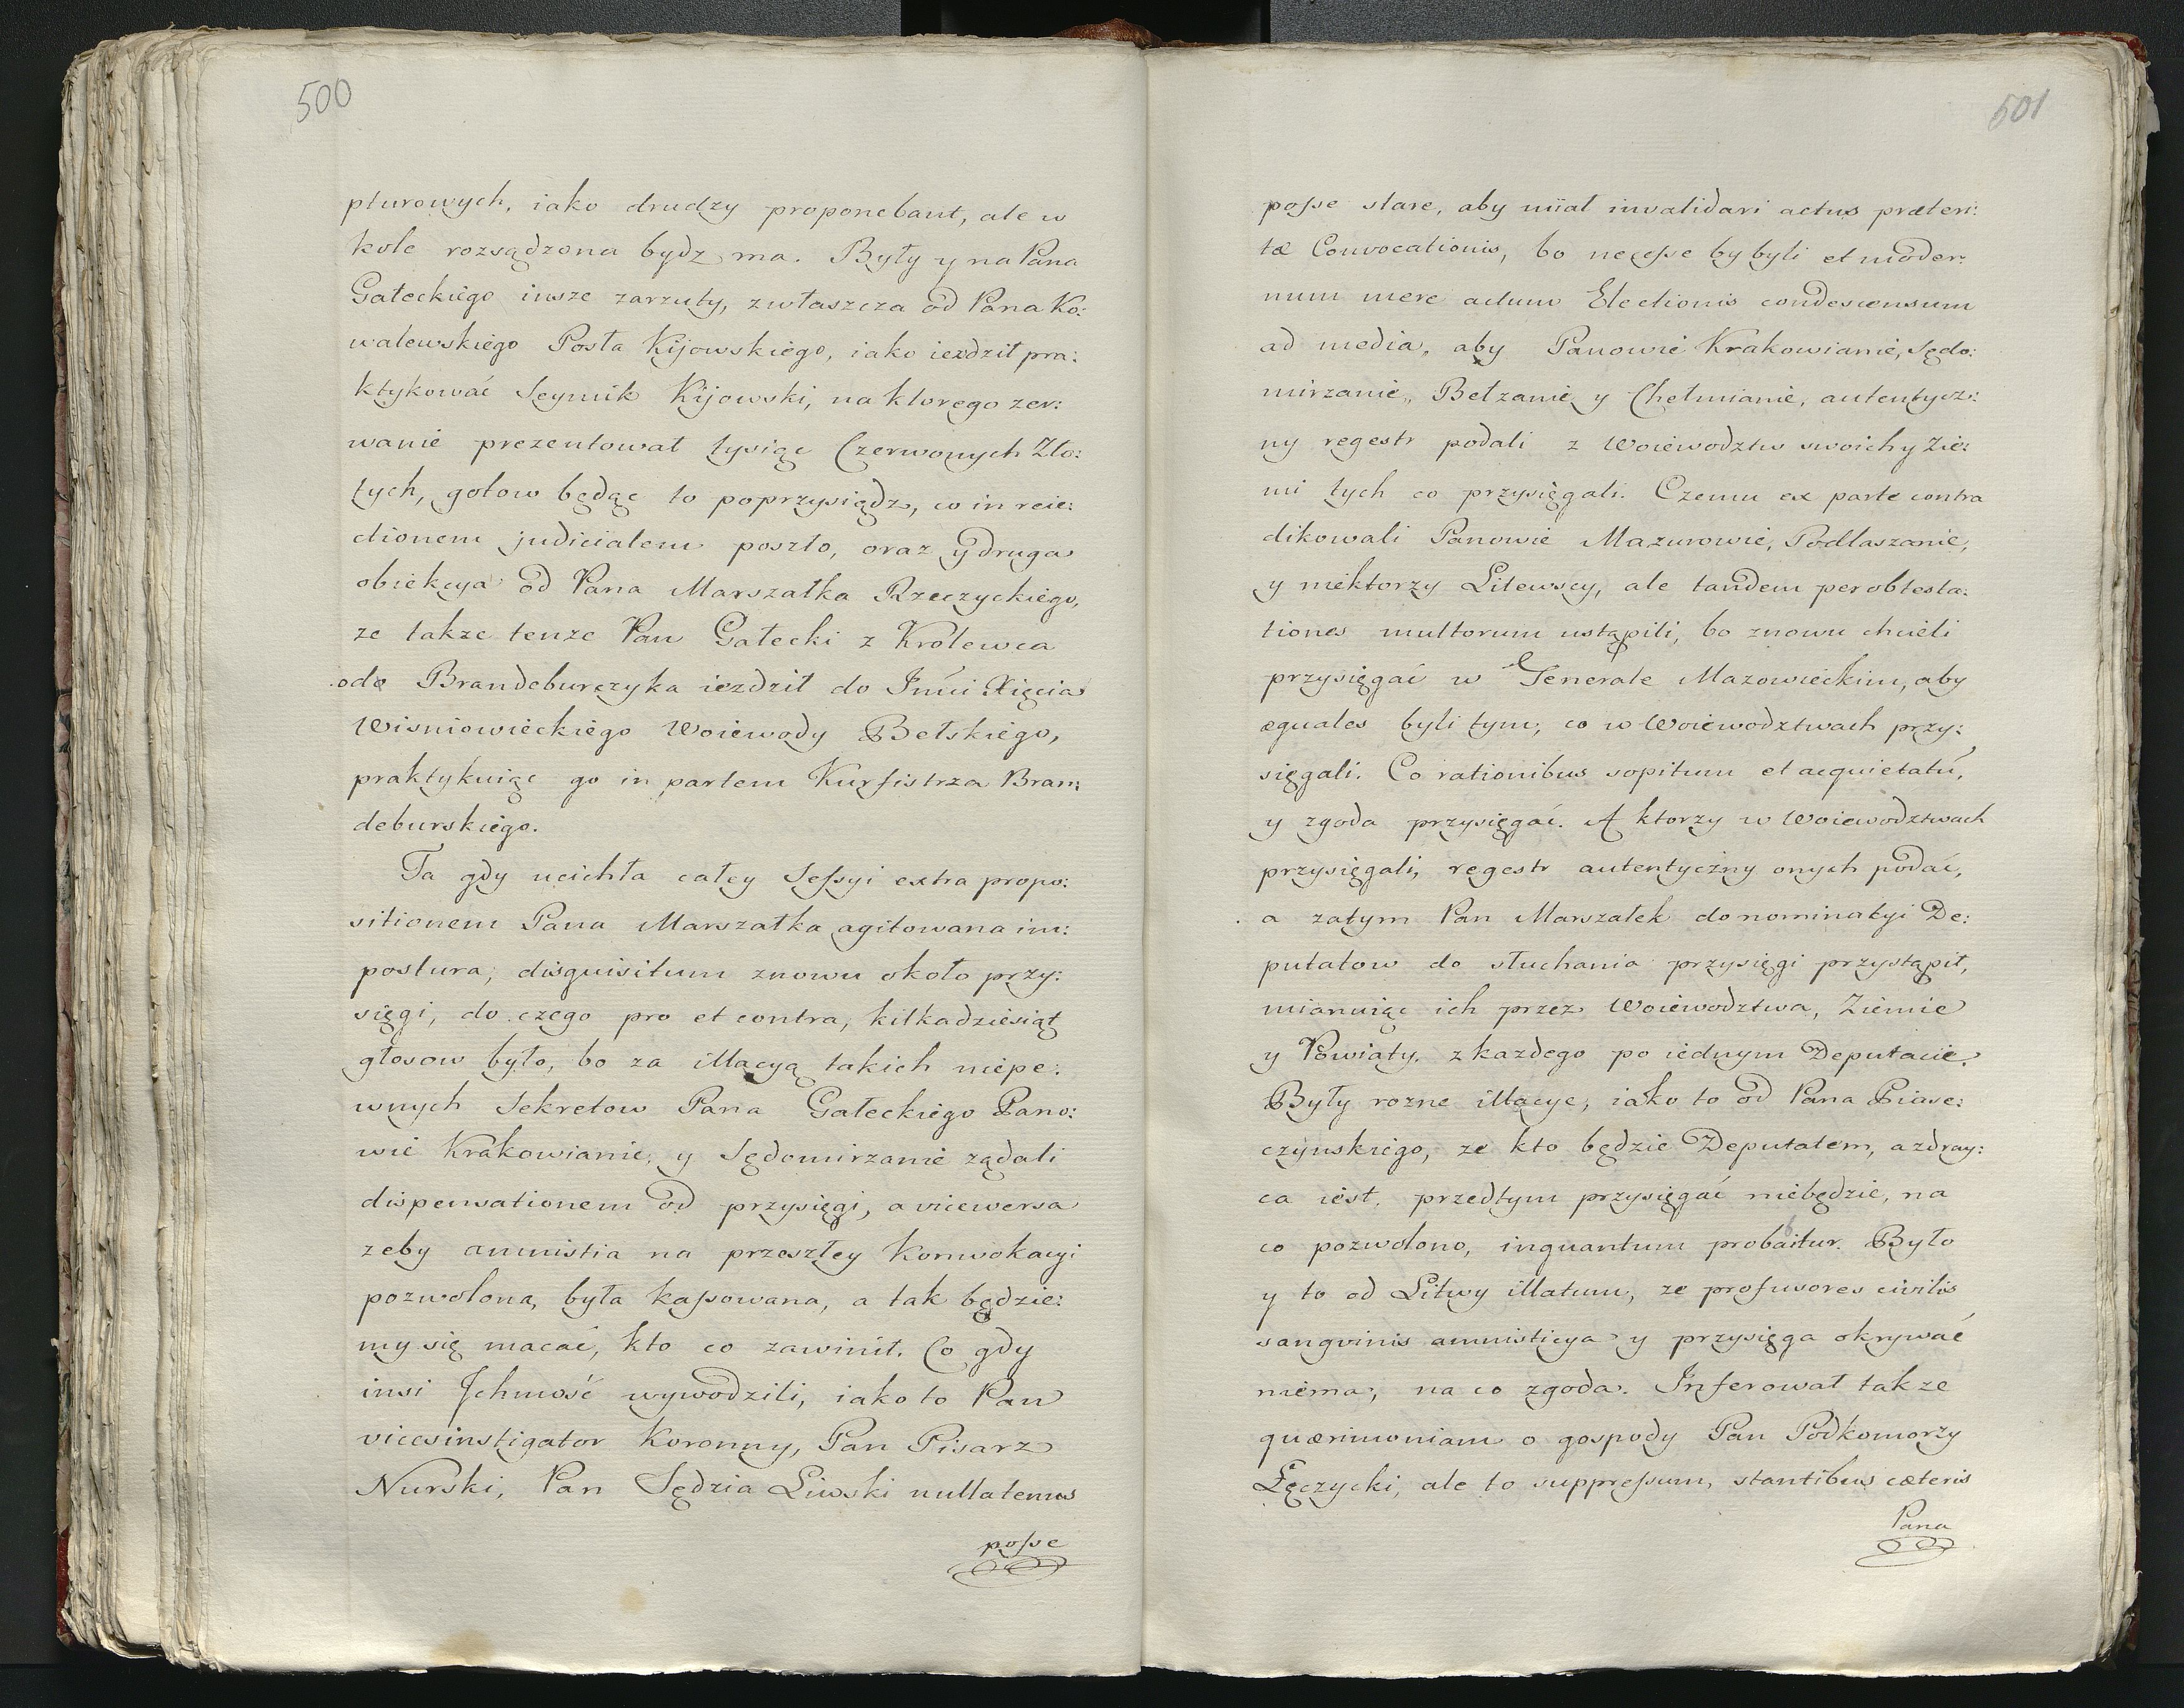 500
pturowych, iako drudzy proponebant, ale w
kole rozsądzona bydz ma. Były y na Pana
Gałeckiego insze zarzuty, zwłaszcza od Pana Ko:
walewskiego Posła Kijowskiego, iako iezdził pra:
ktykować Seymik Kijowski, na ktorego zer:
wanie prezentował tysiąc Czerwonych Zło:
tych, gotow będąc to poprzysiądz, co in reie:
ctionem judicialem poszło, oraz y druga
obiekcya od Pana Marszałka Rzeczyckiego,
ze takze tenze Pan Gałecki z Krolewca
odo Brandeburczyka iezdził do Jmći Xięcia
Wisniowieckiego Woiewody Bełskiego,
praktykuiąc go in partem Kurfistrza Bran:
deburskiego.
Ta gdy ucichła całey Sessyi extra propo:
sitionem Pana Marszałka agitowana im:
postura, disquisitum znowu około przy:
sięgi, do czego pro et contra, kilkadziesiąt
głosow było, bo za illacyą takich niepe:
wnych Sekretow Pana Gałeckiego Pano:
wie Krakowianie, y Sędomirzanie ządali
dispensationem od przysięgi, a vicewersa
zeby amnistia na przeszłey Konwokacyi
pozwolona, była kassowana, a tak będzie:
my się macać, kto co zawinił. Co gdy
insi Jchmość wywodzili, iako to Pan
vicesinstigator Koronny, Pan Pisarz
Nurski, Pan Sędzia Liwski nullatenus
posse
501
posse stare, aby miał invalidari actus præteri:
tæ Convocationis, bo necesse by byli et moder:
num mere actum Electionis condescensum
ad media, aby Panowie Krakowianie, Sędo:
mirzanie, Bełzanie y Chełmianie, autentycz:
ny regestr podali z Woiewodztw swoich y Zie:
mi tych co przysięgali. Czemu ex parte contra
dikowali Panowie Mazurowie, Podlaszanie,
y niektorzy Litewscy, ale tandem per obtesta:
tiones multorum ustąpili, bo znowu chcieli
przysięgać w Generale Mazowieckim, aby
æquales byli tym, co w Woiewodztwach przy:
sięgali. Co rationibus sopitum et acquietatū,
y zgoda przysięgać. A ktorzy w Woiewodztwach
przysięgali, regestr autentyczny onych podać,
a zatym Pan Marszałek do nominatyi De:
putatow do słuchania przysięgi przystąpił,
mianuiąc ich przez Woiewodztwa, Ziemie
y Powiaty, z kazdego po iednym Deputacie.
Były rozne illacye, iako to od Pana Piase:
czynskiego, ze kto będzie Deputatem, a zdray:
ca iest, przedtym przysięgać niebędzie, na
co pozwolono, inquantum probabitur. Było
y to od Litwy illatum, ze profusores civilis
sangvinis amnisticya y przysięga okrywać
niema, na co zgoda. Inferował takze
quærimoniam o gospody Pan Podkomorzy
Łęczycki, ale to suppressum, stantibus cæteris
Pana